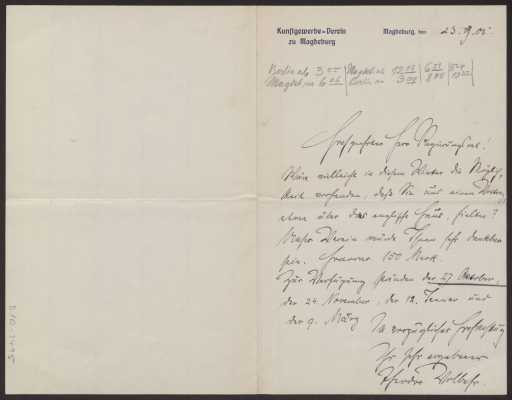 Kunstgewerbe-Verein
zu Magdeburg
Magdeburg, den 23.9.05.
Berlin ab 3 Magdeb. ab
Magdeb. an Berlin an
Hochgeehrter Herr Regierungsrat!
Wäre vielleicht in diesem Winter die Möglich-
keit vorhanden, daß Sie uns einen Vortrag
etwa über das englische Haus hielten?
Unser Verein würde Ihnen sehr dankbar
sein. Honorar 150 Mark.
Zur Verfügung stünden der 27. Oktober,
der 24. November, der 12. Jenner und
der 9. März
In vorzüglicher Hochachtung
Ihr sehr ergebener
Theodor Volbehr.